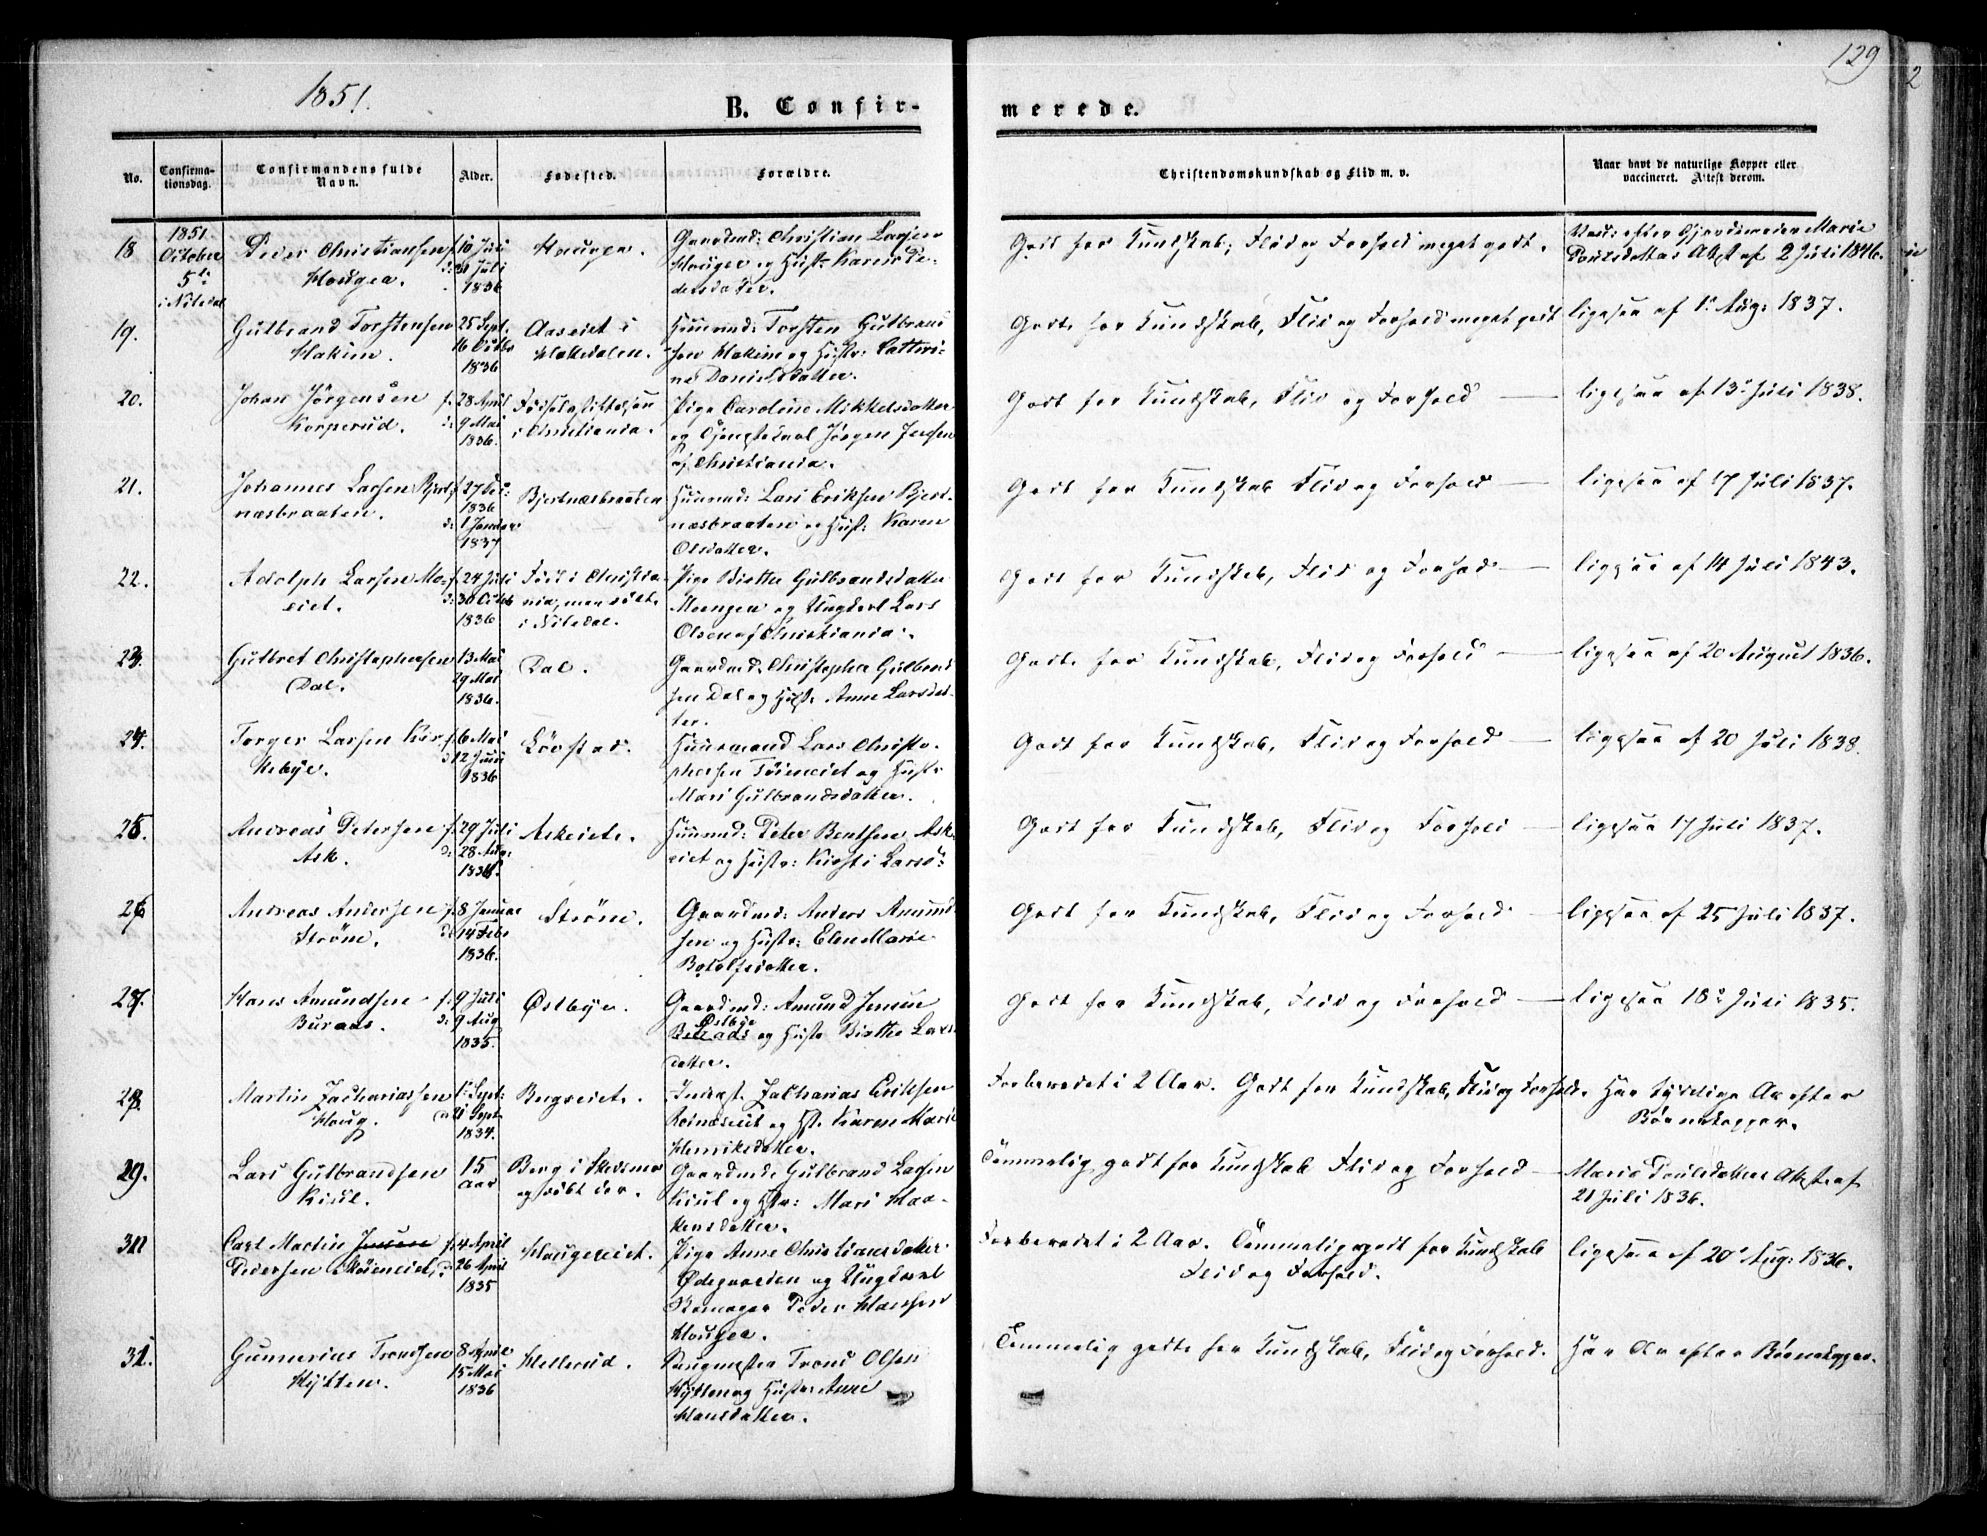 129
2
1851.
B. Confir-
merede.
No.
Confirma-
tionsdag.
Confirmandens fulde
Navn.
Alder.
Fødested.
Forældre.
Christendomskundskab og Flid m. v.
Naar havt de naturlige Kopper eller
vaccineret. Attest derom.
18
1851.
October
5te
i Nitedal
Peder Christiansen
Hougen.
f. 10 Juli
d: 31 Juli
1836
Hougen.
Gaardmd: Christian Larsen
Hougen og Hust: Karen Pe-
dersdatter.
Godt for Kundskab; Flid og Forhold meget godt.
Vacc: efter Gjordemoder Marie
Poulsdatters Attest af 2 Juli 1846.
19.
Gulbrand Torstensen
Hakim.
25 Sept.
16 Octbr
1836
Aaseiet i
Hakedalen.
Huusmd: Torsten Gulbrand
sen Hakim og Hustr: Cathri-
ne Danielsdatter.
Godt for Kundskab, Flid og Forhold meget godt
ligesaa af 1ste Aug: 1837.
20.
Johan Jörgensen
Korperud.
f. 28 April
d: 9 Mai
1836.
Födselsstiftelsen
i Christiania.
Pige Caroline Mikkelsdatter
og Tjenestekarl Jörgen Jensen
af Christiania.
Godt for Kundskab, Flid og Forhold
ligesaa af 13de Juli 1838.
21.
Johannes Larsen Bjert
næsbraaten.
f. 27 Dec:
1836
d: 1 Januar
1837
Bjertnæsbraaten
Huusmd: Lars Eriksen Bjert-
næsbraaten og Hust: Karen
Olsdatter.
Godt for Kundskab Flid og Forhold
ligesaa af 17 Juli 1837.
22.
Adolph Larsen Mo-
eiet.
f. 24 Juli
d: 30 Octob
1836
Född i Christia-
nia, men döbt
i Nitedal.
Pige Birthe Gulbrandsdatter
Moengen og Ungkarl Lars
Olsen af Christiania.
Godt for Kundskab, Flid og Forhold
ligesaa af 14 Juli 1843.
23.
Gulbret Christophersen
Dal.
13 Mai
29 Mai
1836.
Dal.
Gaardmd: Christopher Gulbrand
sen Dal og Hust: Anne Larsdat-
ter.
Godt for Kundskab, Flid og Forhold
ligesaa af 20 August 1836.
24.
Torger Larsen Kir
kebye.
f. 6 Mai
d: 12 Juni
1836
Lövstad.
Huusmand Lars Christo-
phersen og Hust:
Mari Gulbrandsdatter.
Godt for Kundskab, Flid og Forhold
ligesaa af 20 Juli 1838.
25.
Andreas Petersen
Ask.
f. 29 Juli
d: 28 Aug:
1836.
Askeiet.
Huusmd: Peter Bentsen Ask-
eiet og Hustr: Kirsti Larsd:
Godt for Kundskab, Flid og Forhold
ligesaa 17 Juli 1837.
26
Andreas Andersen
Ström.
f. 8 Januar
d: 14 Febr
1836.
Ström.
Gaardmd: Anders Amund-
sen og Hustr: Elen Marie
Botolfsdatter.
Godt for Kundskab, Flid og Forhold
ligesaa af 25 Juli 1837.
27.
Hans Amundsen
Buraas.
f. 9 Juli
d: 9 Aug
1835.
Østbye.
Gaardmd: Amund Jensen
Østbye
Buraas og Hustr Birthe Lars
datter.
Godt for Kundskab, Flid og Forhold
ligesaa 18de Juli 1835.
28.
Martin Zachariassen
Houg.
1ste Sept:
21 Sept.
1834.
Bugseiet.
Inderst. Zacharias Eriksen
og Hst. Karen Marie
Henriksdatter.
Forberedet i 2 Aar. Godt for Kundskab, Flid og Forhold.
Har tydelige Ar efter
Børnekopper.
29.
Lars Gulbrandsen
Kisul.
15
aar
Berg i Skedsmo
og döbt der.
Gaardmd: Gulbrand Larsen
Kisul og Hstr: Mari Haa-
kensdatter.
Temmelig godt for Kundskab Flid og Forhold
Marie Poulsdatters Attest af
21 Juli 1836.
30
Carl Martin Jensen
Pedersen
f. 4 April
d: 26 April
1835
Hougseiet.
Pige Anne Christiansdatter
Ødegaarden og Ungkarl
Skomager Peder Hansen
Hougen.
Forberedet i 2 Aar. Temmelig godt for Kundskab
Flid og Forhold.
ligesaa af 20de Aug: 1836.
31.
Gunnerius Trondsen
Hytten.
8 April
15 Mai
1836
Hellerud.
Saugmester Trond Olsen
Hytten og Hustr: Anne
Hansdatter.
Temmelig godt for Kundskab, Flid og Forhold.
Har Ar efter Børnekopper.